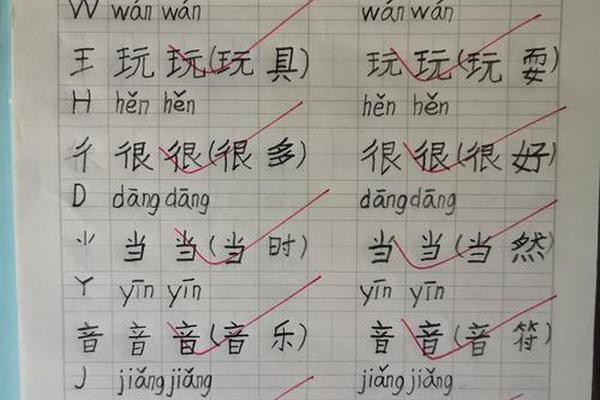 W wán wán wán wán
王 玩 玩(玩 具) 玩 玩(玩 耍)
H hěn hěn hěn hěn
彳 很 很(很 多) 很 很(很 好)
D dāng dāng dāng dāng
⺌ 当 当(当 时) 当 当(当 然)
Y yīn yīn yīn yīn
音 音 音(音 乐) 音 音(音 符)
J jiǎng jiǎng jiǎng jiǎng